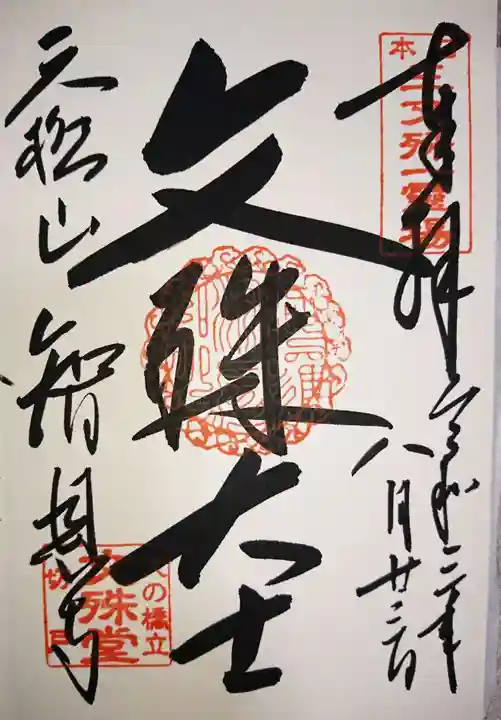 奉拝
令和三年
八月廿二日
日本三文殊一霊場
文殊大士
天橋山
智恩寺
天の橋立
文殊堂
切戸